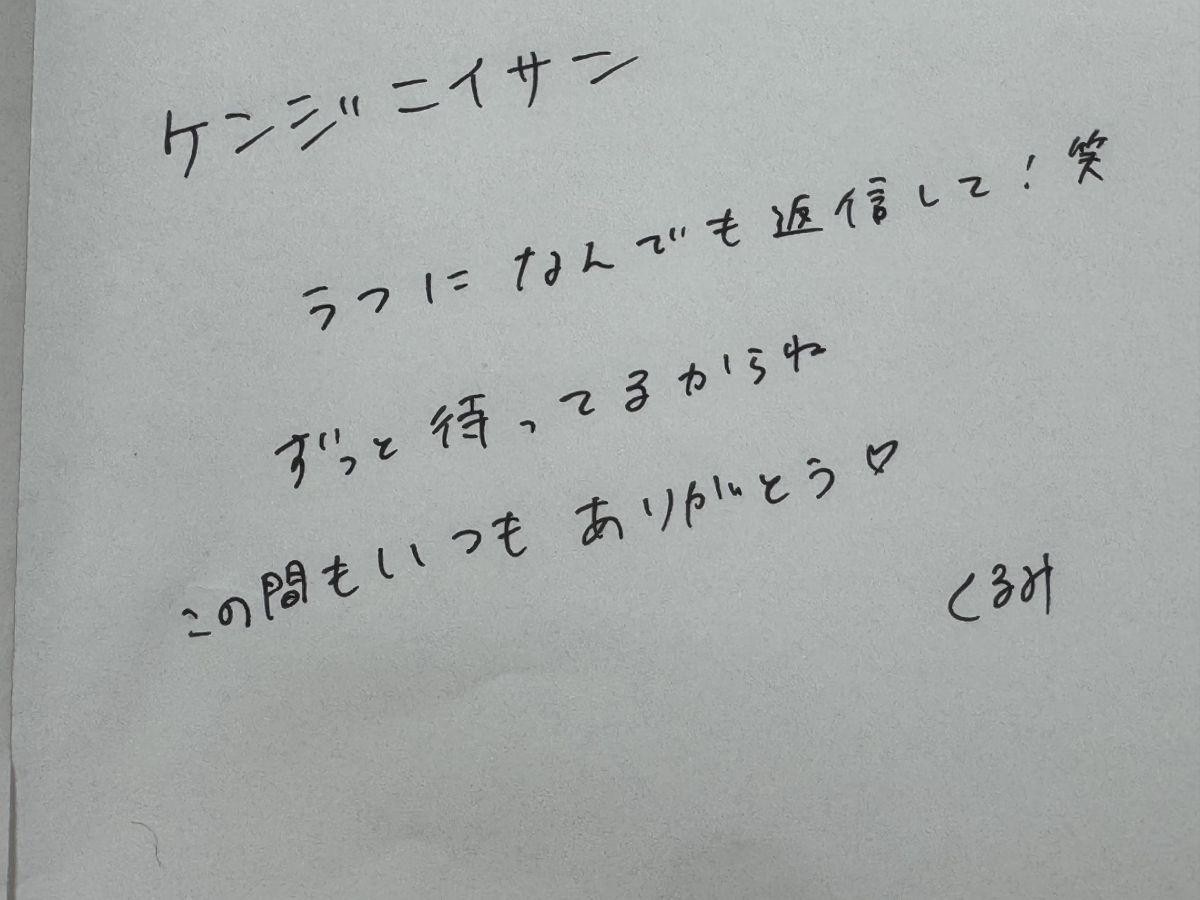 ケンジニイサン
うつに なんでも返信して!笑
ずっと待ってるからね
この間もいつもありがとう♡
くるみ